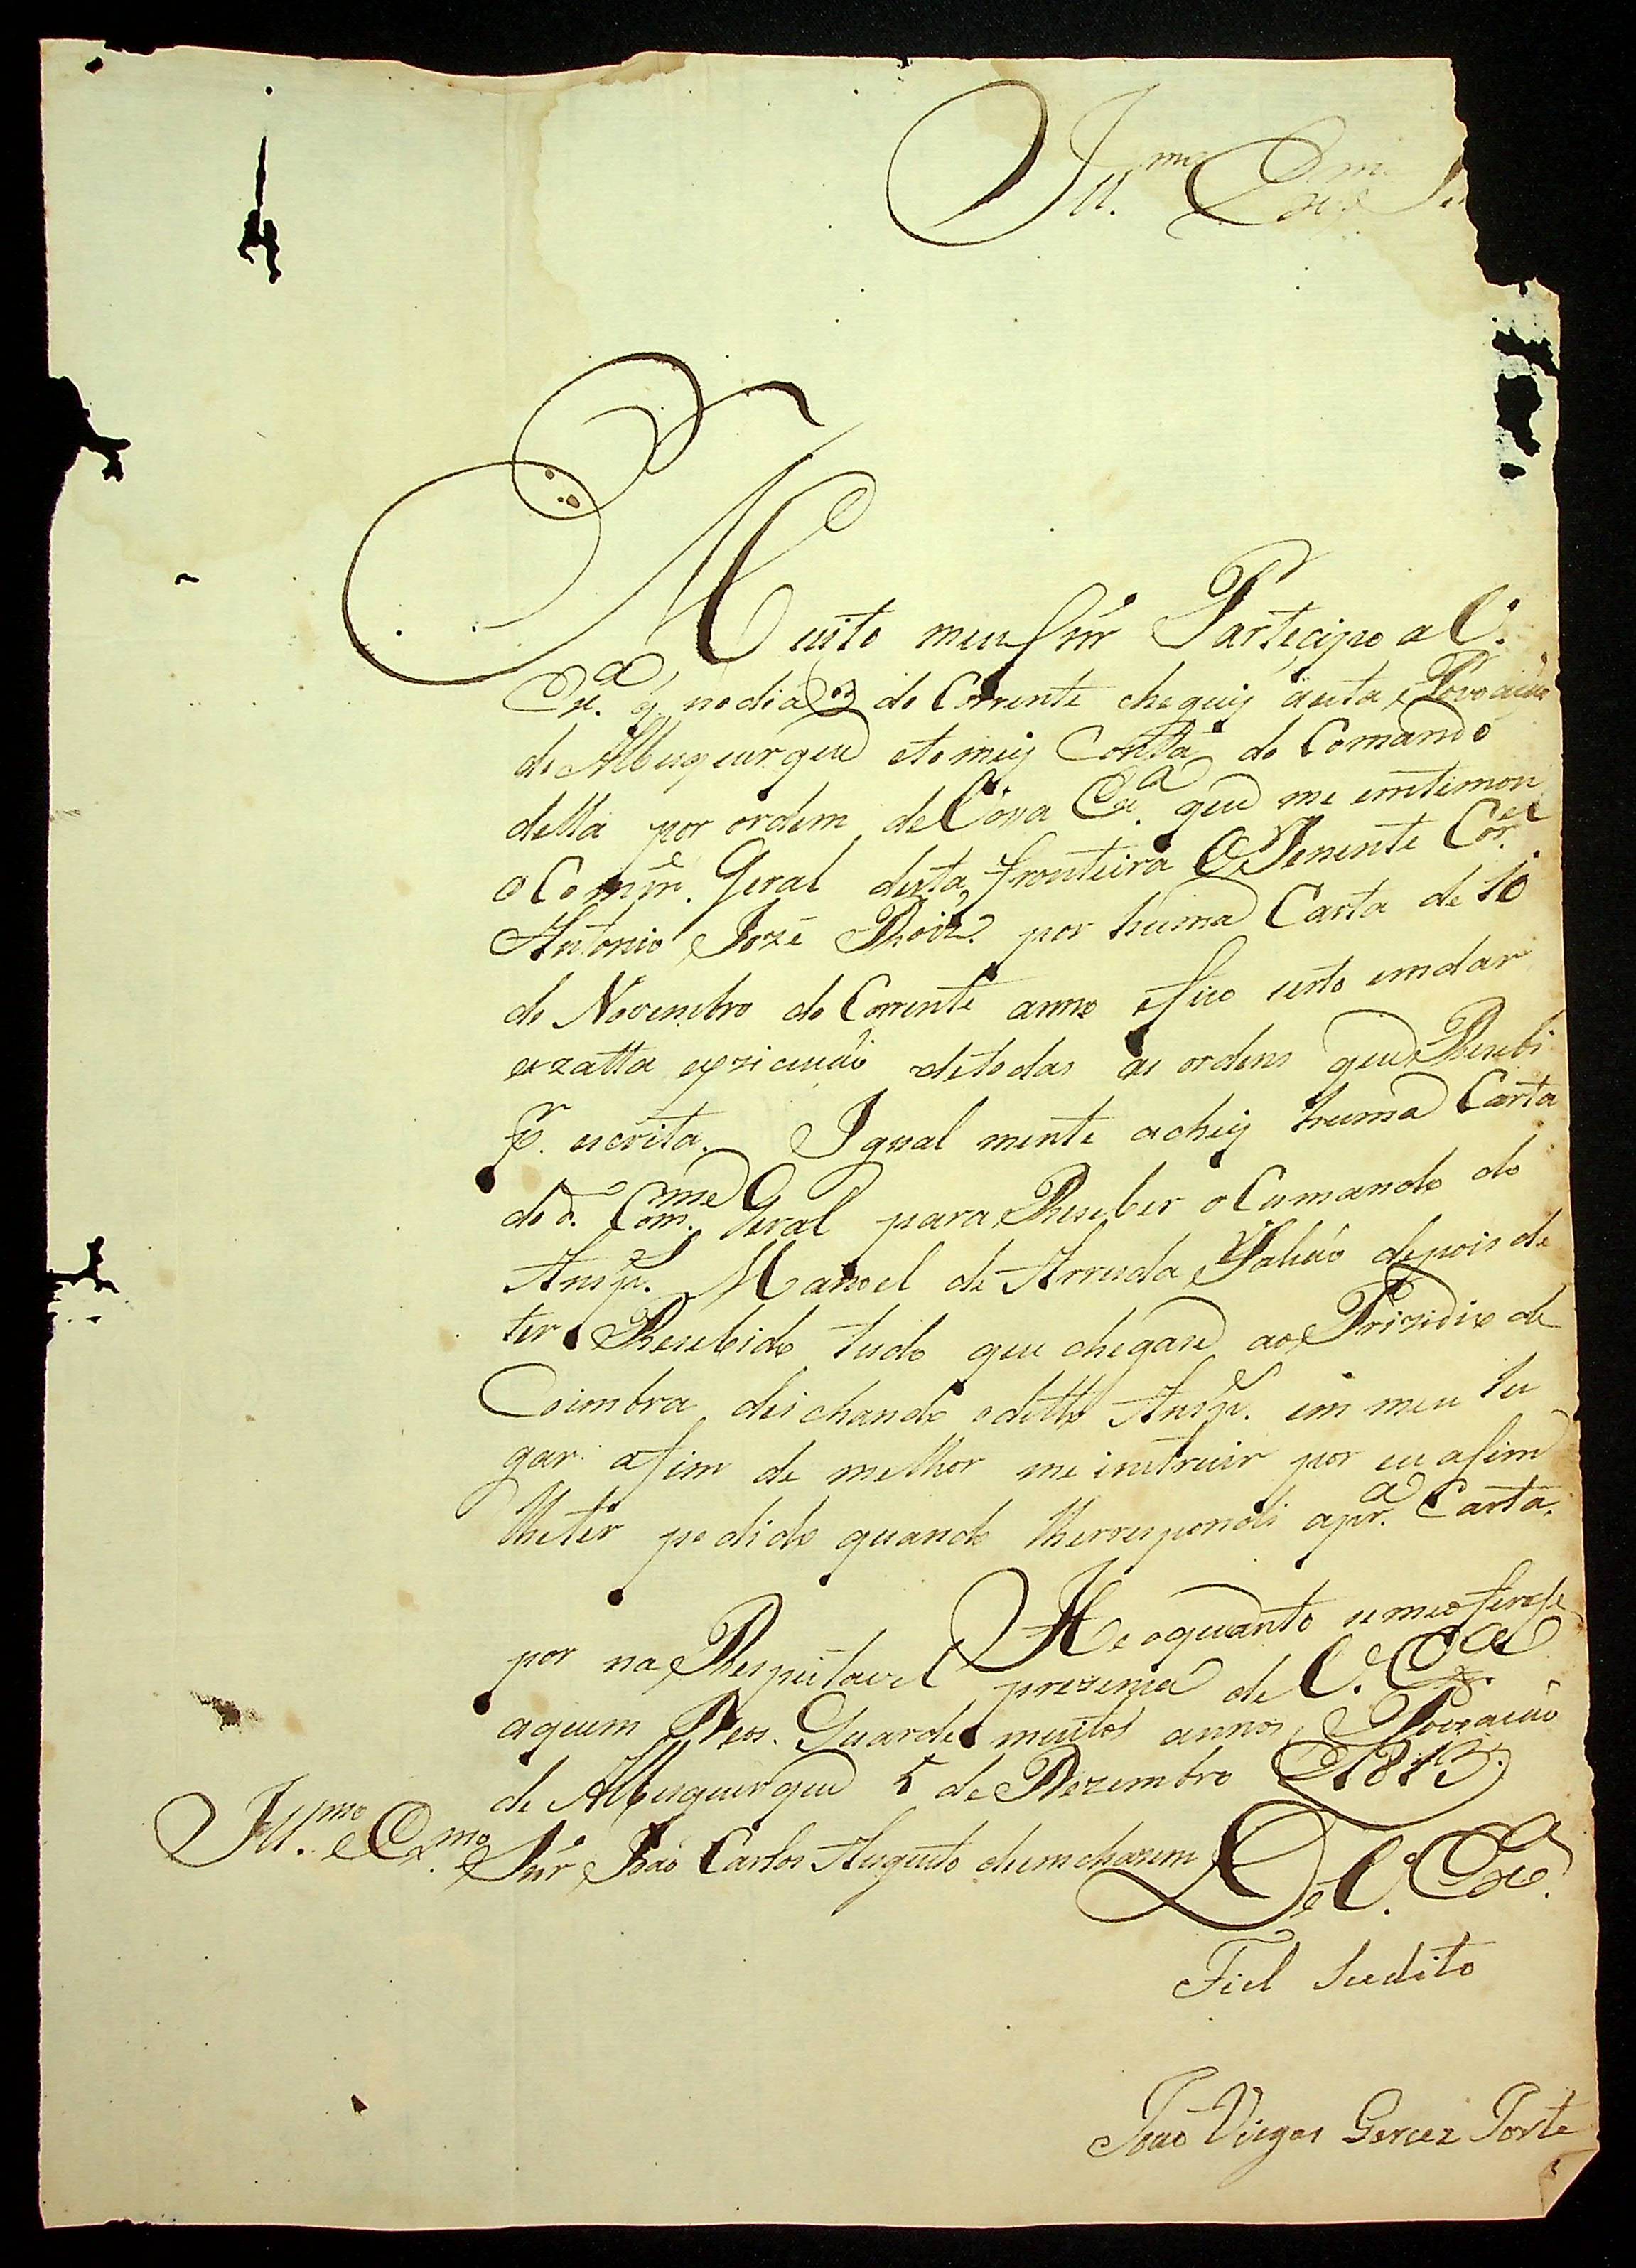 Ill.mo Ex.mo Sn
Muito meu Snr̃ Partecipo a V.
Ex.a q̃ no dia 3 do Corrente cheguij aesta Povoação
de Albuquerque etomeij Conta do Comando
della por ordem de Vossa Ex.a que me entimou
o Comm.e Geral desta fronteira o Tenente Cor.el
Antonio Joze Roiz. por huma Carta de 10
do Novembro do Corrente anno efico serto emdar
exzatta epzicução detodas as ordens que Resebi
p.r escrita. Igual mente acheij huma Carta
do d.o Com.me Geral para Reseber o Cumando do
Ansp.e Manoel de Arruda Falcão depois de
ter Resebido tudo que chegase ao Prizidio de
Coimbra deichando oditto Ansp.e em meu lu
gar afim de melhor me instruir por eu asim
lheter pedido quando lherrespondi apr.a Carta.
He oquanto semeoferese
por na Respeitavel prezença de V. Ex.a
aquem Deos. Guarde muitos annos Povoação
de Albuquerque 5 de Dezembro 1813.
Ill.mo e Ex.mo Snr̃ João Carlos Augusto dhemchasem
De V. Ex.a
Fiel Sudito
João Viegas Gercez Porte